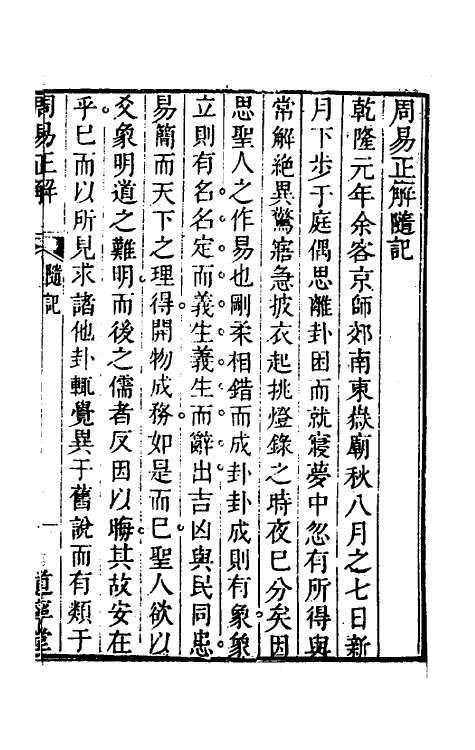 周易正解隨記
乾隆元年余客京師郊南東嶽廟秋八月之七日新
月下步于庭偶思離卦困而就寢夢中忽有所得與
常解絕異驚寤急披衣起挑燈錄之時夜巳分矣因
思聖人之作易也剛柔相錯而成卦卦成則有象象
立則有名名定而義生義生而辭出吉凶與民同患
易簡而天下之理得開物成務如是而巳聖人欲以
爻象明道之難明而後之儒者反因以晦其故安在
乎巳而以所見求諸他卦輒覺異于舊說而有類于
周易正解 隨記 一 道寧堂